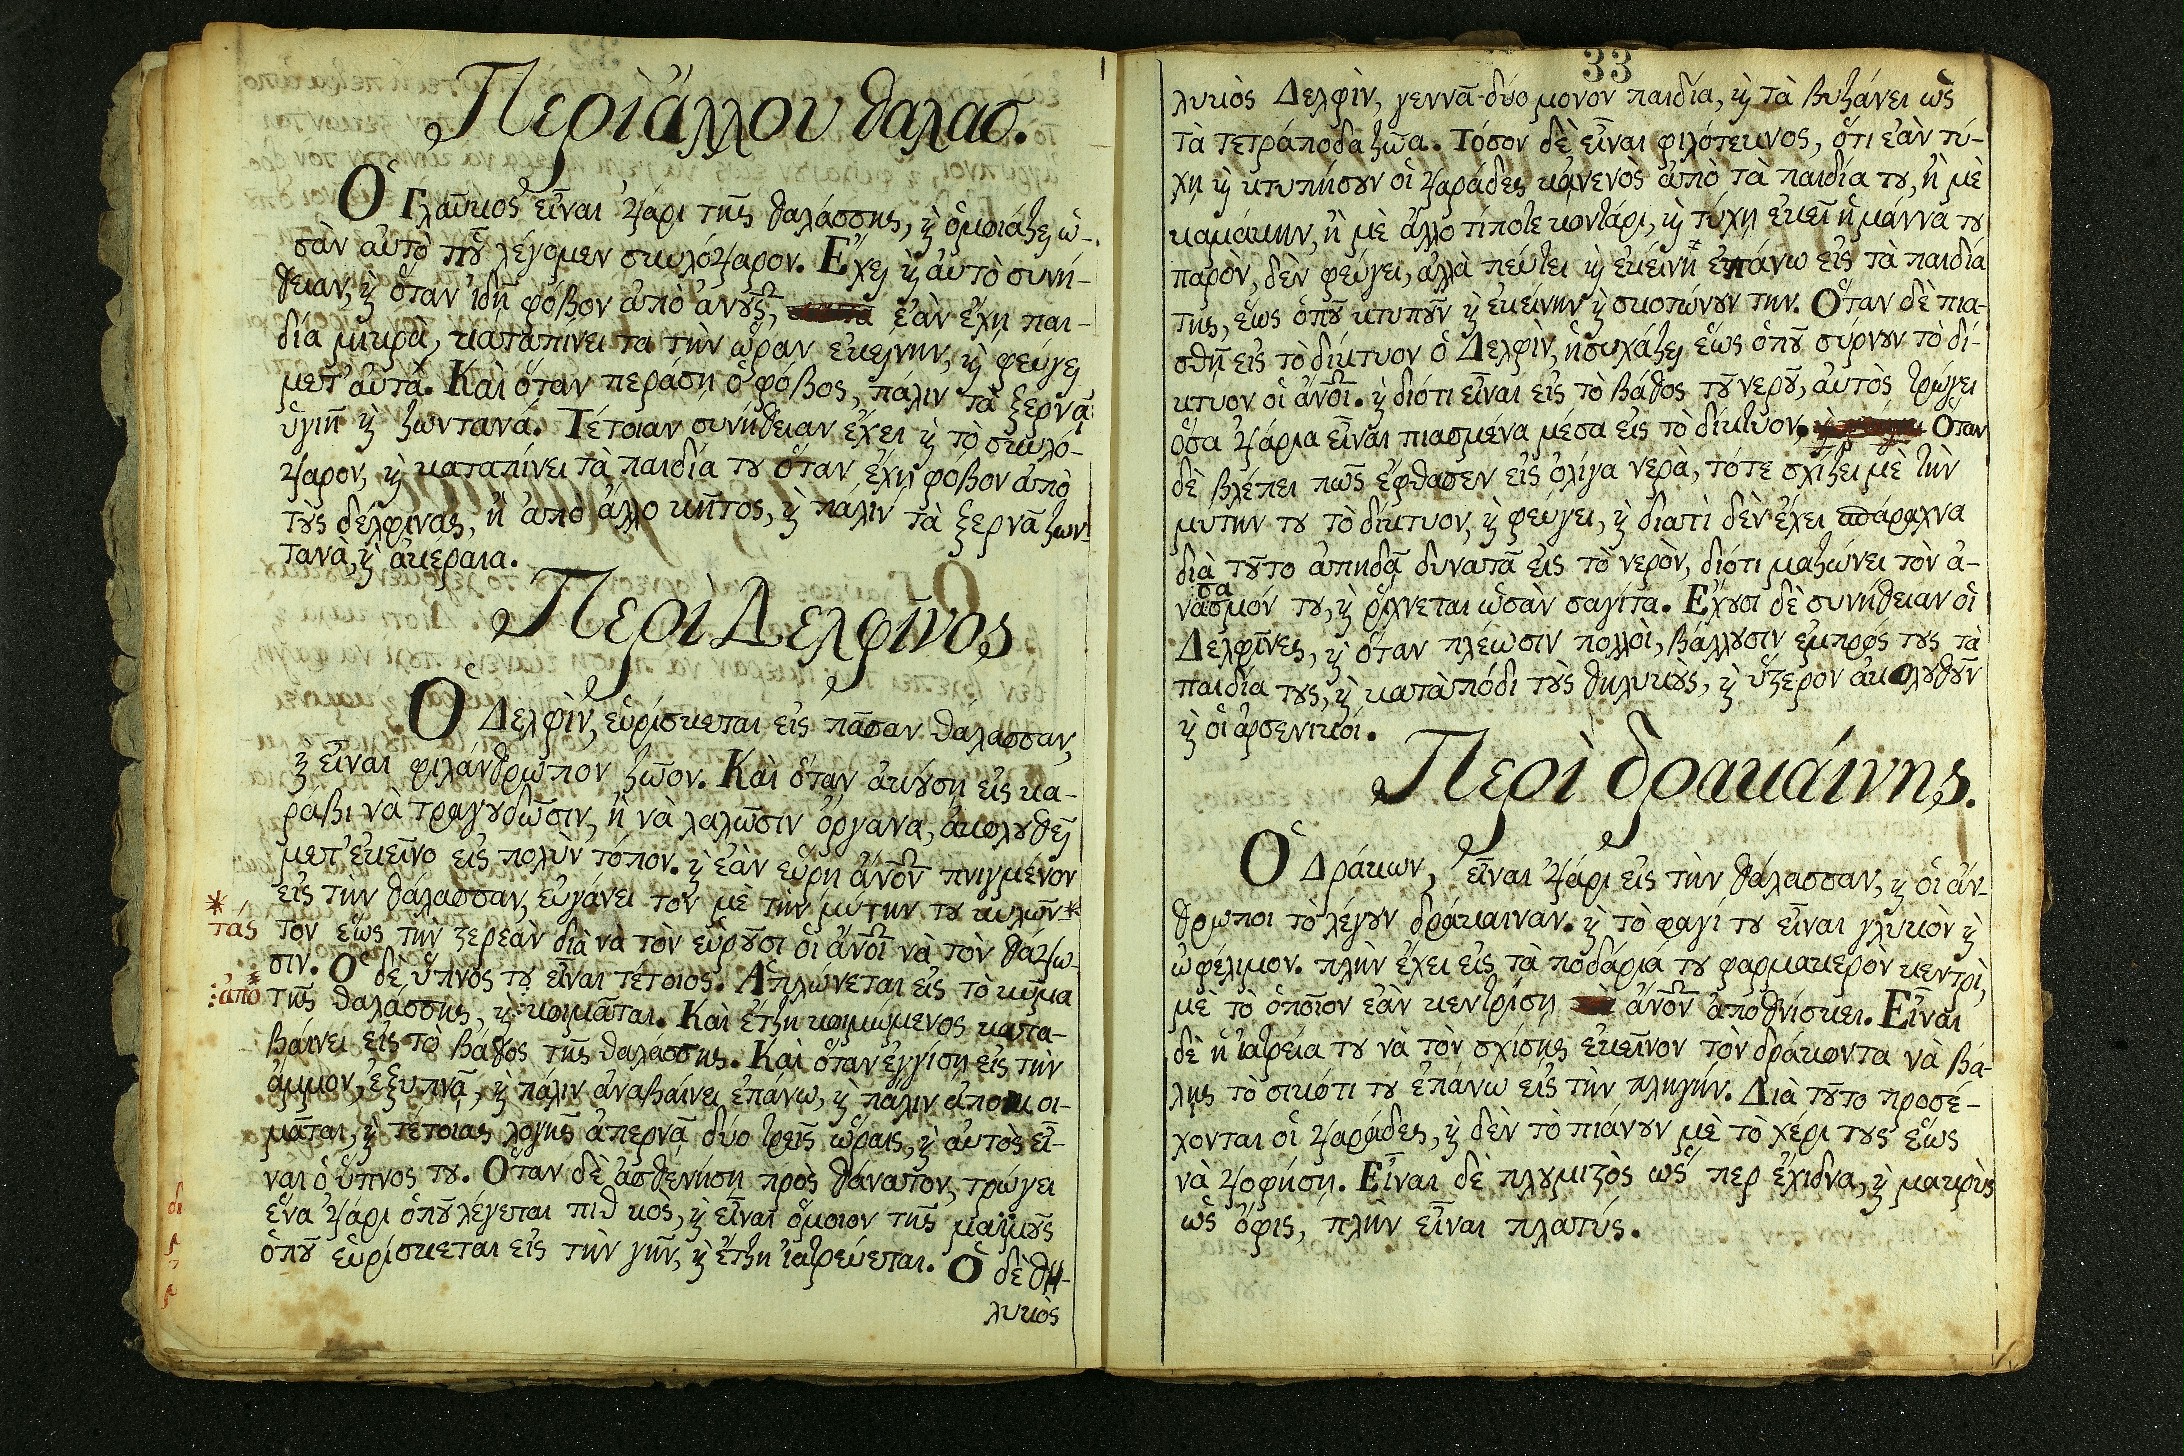 Περὶ ἄλλου θαλασ.
Ὁ Γλαῦκος εἶναι ψάρι τῆς θαλάσσης, ϗ ὁμοιάζει ὡ-
σὰν αὐτὸ ποῦ λέγομεν σκυλόψαρον. Ἔχει ϗ αὐτὸ συνή-
θειαν, ϗ ὅταν ἰδῇ φόβον ἀπὸ ἀνους, ἐὰν ἔχῃ παι-
δία μικρὰ, καταπίνει τα τὴν ὥραν ἐκείνην, ϗ φεύγει
μετ' αὐτά. Καὶ ὅταν περάσῃ ὁ φόβος, πάλιν τὰ ξερνᾷ
ὑγιῆ ϗ ζωντανά. Τέτοιαν συνήθειαν ἔχει ϗ τὸ σκυλό-
ψαρον, ϗ καταπίνει τὰ παιδία του ὅταν ἔχῃ φόβον ἀπὸ
τοὺς δέλφινας, ἢ ἀπὸ ἄλλο κῆτος, ϗ πάλιν τὰ ξερνᾷ ζων-
τανὰ, ϗ ἀκέραια.
Περὶ Δελφῖνος
Ὁ Δελφὶν, εὑρίσκεται εἰς πᾶσαν θάλασσαν,
ϗ εἶναι φιλάνθρωπον ζῶον. Καὶ ὅταν ἀκούσῃ εἰς κα-
ράβι νὰ τραγουδῶσιν, ἢ νὰ λαλῶσιν ὄργανα, ἀκολουθεῖ
μετ' ἐκεῖνο εἰς πολὺν τόπον. ϗ ἐὰν εὕρῃ ἄνον πνιγμένον
εἰς τὴν θάλασσαν, εὐγάνει τον μὲ τὴν μύτην του κυλῶν*
* τάς
τον ἕως τὴν ξερεὰν διὰ νὰ τὸν εὑροῦσι οἱ ἄνοι νὰ τὸν θάψω-
σιν. Ὁ δὲ ὕπνος του εἶναι τέτοιος. Ἁπλώνεται εἰς τὸ κῦμα
:ἀπὸ
τῆς θαλάσσης, ϗ κοιμᾶται. Καὶ ἔτζη κοιμώμενος κατα-
βαίνει εἰς τὸ βάθος τῆς θαλάσσης. Καὶ ὅταν ἐγγίσῃ εἰς τὴν
ἄμμον, ἐξυπνᾷ, ϗ πάλιν ἀναβαίνει ἐπάνω, ϗ πάλιν ἀποκοι-
μᾶται, ϗ τέτοιας λογῆς ἀπερνᾷ δύο τρεῖς ὥραις, ϗ αὐτὸς εἶ-
ναι ὁ ὕπνος του. Ὅταν δὲ ἀσθενήσῃ πρὸς θάνατον, τρώγει
ἕνα ψάρι ὁποῦ λέγεται πιθηκὸς, ϗ εἶναι ὅμοιον τῆς μαϊμοῦς
ὁποῦ εὑρίσκεται εἰς τὴν γῆν, ϗ ἔτζη ἰατρεύεται. Ὁ δὲ θη-
λυκὸς
33
λυκὸς Δελφὶν, γεννᾷ δύο μόνον παιδία, ϗ τὰ βυζάνει ὡς
τὰ τετράποδα ζῶα. Τόσον δὲ εἶναι φιλότεκνος, ὅτι ἐὰν τύ-
χῃ ϗ κτυπήσουν οἱ ψαράδες κᾀνενὸς ἀπὸ τὰ παιδία του, ἢ μὲ
καμάκην, ἢ μὲ ἄλλο τίποτε κοντάρι, ϗ τύχῃ ἐκεῖ ἡ μάννα του
παρὸν, δὲν φεύγει, ἀλλὰ πεύτει ϗ ἐκείνη ἐπάνω εἰς τὰ παιδία
της, ἕως ὁποῦ κτυποῦν ϗ ἐκείνην ϗ σκοτώνουν την. Ὅταν δὲ πια-
σθῇ εἰς τὸ δίκτυον ὁ Δελφὶν, ἡσυχάζει ἕως ὁποῦ σύρνουν τὸ δί-
κτυον οἱ ἄνοι. ϗ διότι εἶναι εἰς τὸ βάθος τοῦ νεροῦ, αὐτὸς τρώγει
ὅσα ψάρια εἶναι πιασμένα μέσα εἰς τὸ δίκτυον. Ὅταν
δὲ βλέπει πῶς ἔφθασεν εἰς ὀλίγα νερὰ, τότε σχίζει μὲ τὴν
μύτην του τὸ δίκτυον, ϗ φεύγει, ϗ διατὶ δὲν ἔχει σπάραχνα
διὰ τοῦτο ἀπηδᾷ δυνατᾷ εἰς τὸ νερὸν, διότι μαζώνει τὸν ἀ-
νασασμόν του, ϗ ῥίχνεται ὡσὰν σαγίτα. Ἔχουσι δὲ συνήθειαν οἱ
Δελφῖνες, ϗ ὅταν πλέωσιν πολλοὶ, βάλλουσιν ἐμπρός τους τὰ
παιδία τους, ϗ κατὰ πόδι τοὺς θηλυκοὺς, ϗ ὕστερον ἀκολουθοῦν
ϗ οἱ ἀρσενικοί.
Περὶ δρακαίνης.
Ὁ Δράκων, εἶναι ψάρι εἰς τὴν θάλασσαν, ϗ οἱ ἄν-
θρωποι τὸ λέγουν δράκαιναν. ϗ τὸ φαγί του εἶναι γλυκὸν ϗ
ὠφέλιμον. πλὴν ἔχει εἰς τὰ ποδάριά του φαρμακερὸν κεντρὶ,
μὲ τὸ ὁποῖον ἐὰν κεντρίσῃ ἄνον ἀποθνίσκει. Εἶναι
δὲ ἡ ἰατρεία του νὰ τὸν σχίσῃς ἐκεῖνον τὸν δράκοντα νὰ βά-
λῃς τὸ σικότι του ἐπάνω εἰς τὴν πληγήν. Διὰ τοῦτο προσέ-
χονται οἱ ψαράδες, ϗ δὲν τὸ πιάνουν μὲ τὸ χέρι τους ἕως
νὰ ψοφήσῃ. Εἶναι δὲ πλουμιστὸς ὥς περ ἔχιδνα, ϗ μακρὺς
ὡς ὄφις, πλὴν εἶναι πλατύς.